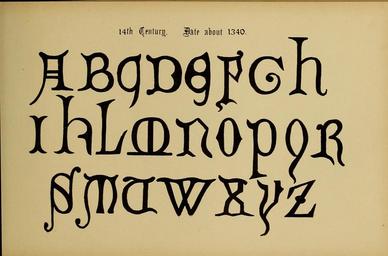 14th Century. Date about 1340.
A B C D E F G h
I K L M N O P Q R
S T U W X y Z